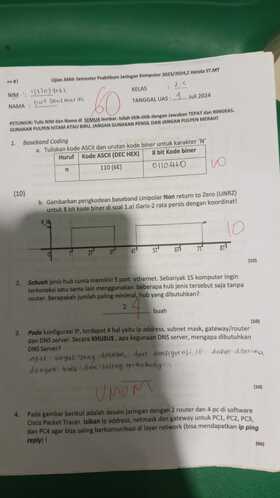 Ujian Akhir Semester Praktikum Jaringan Komputer 2023/2024,2 Hanata ST.MT
NIM :
KELAS :
NAMA :
TANGGAL UAS : 9 Juli 2024
60
PETUNJUK: Tulis NIM dan Nama di SEMUA lembar. Isilah titik-titik dengan jawaban TEPAT dan RINGKAS.
GUNAKAN PULPEN HITAM ATAU BIRU, JANGAN GUNAKAN PENSIL DAN JANGAN PULPEN MERAH!
1. Baseband Coding
a. Tuliskan kode ASCII dan urutan kode biner untuk karakter 'N'
Huruf Kode ASCII (DEC HEX) 8 bit Kode biner
n 110 (6E) 01101110
10
(10)
b. Gambarkan pengkodean baseband Unipolar Non return to Zero (UNRZ)
untuk 8 bit kode biner di soal 1.a) Garis-2 rata persis dengan koordinat!
10
[10]
2. Sebuah jenis hub cuma memiliki 5 port ethernet. Sebanyak 15 komputer ingin
terkoneksi satu sama lain menggunakan beberapa hub jenis tersebut saja tanpa
router. Berapakah jumlah paling minimal, hub yang dibutuhkan?
buah
[10]
3. Pada konfigurasi IP, terdapat 4 hal yaitu ip address, subnet mask, gateway/router
dan DNS server. Secara KHUSUS , apa kegunaan DNS server, mengapa dibutuhkan
DNS Server?
UMUM
[10]
4. Pada gambar berikut adalah desain jaringan dengan 2 router dan 4 pc di software
Cisco Packet Tracer. Isikan ip address, netmask dan gateway untuk PC1, PC2, PC3,
dan PC4 agar bisa saling berkomunikasi di layer network (bisa mendapatkan ip ping
reply) !